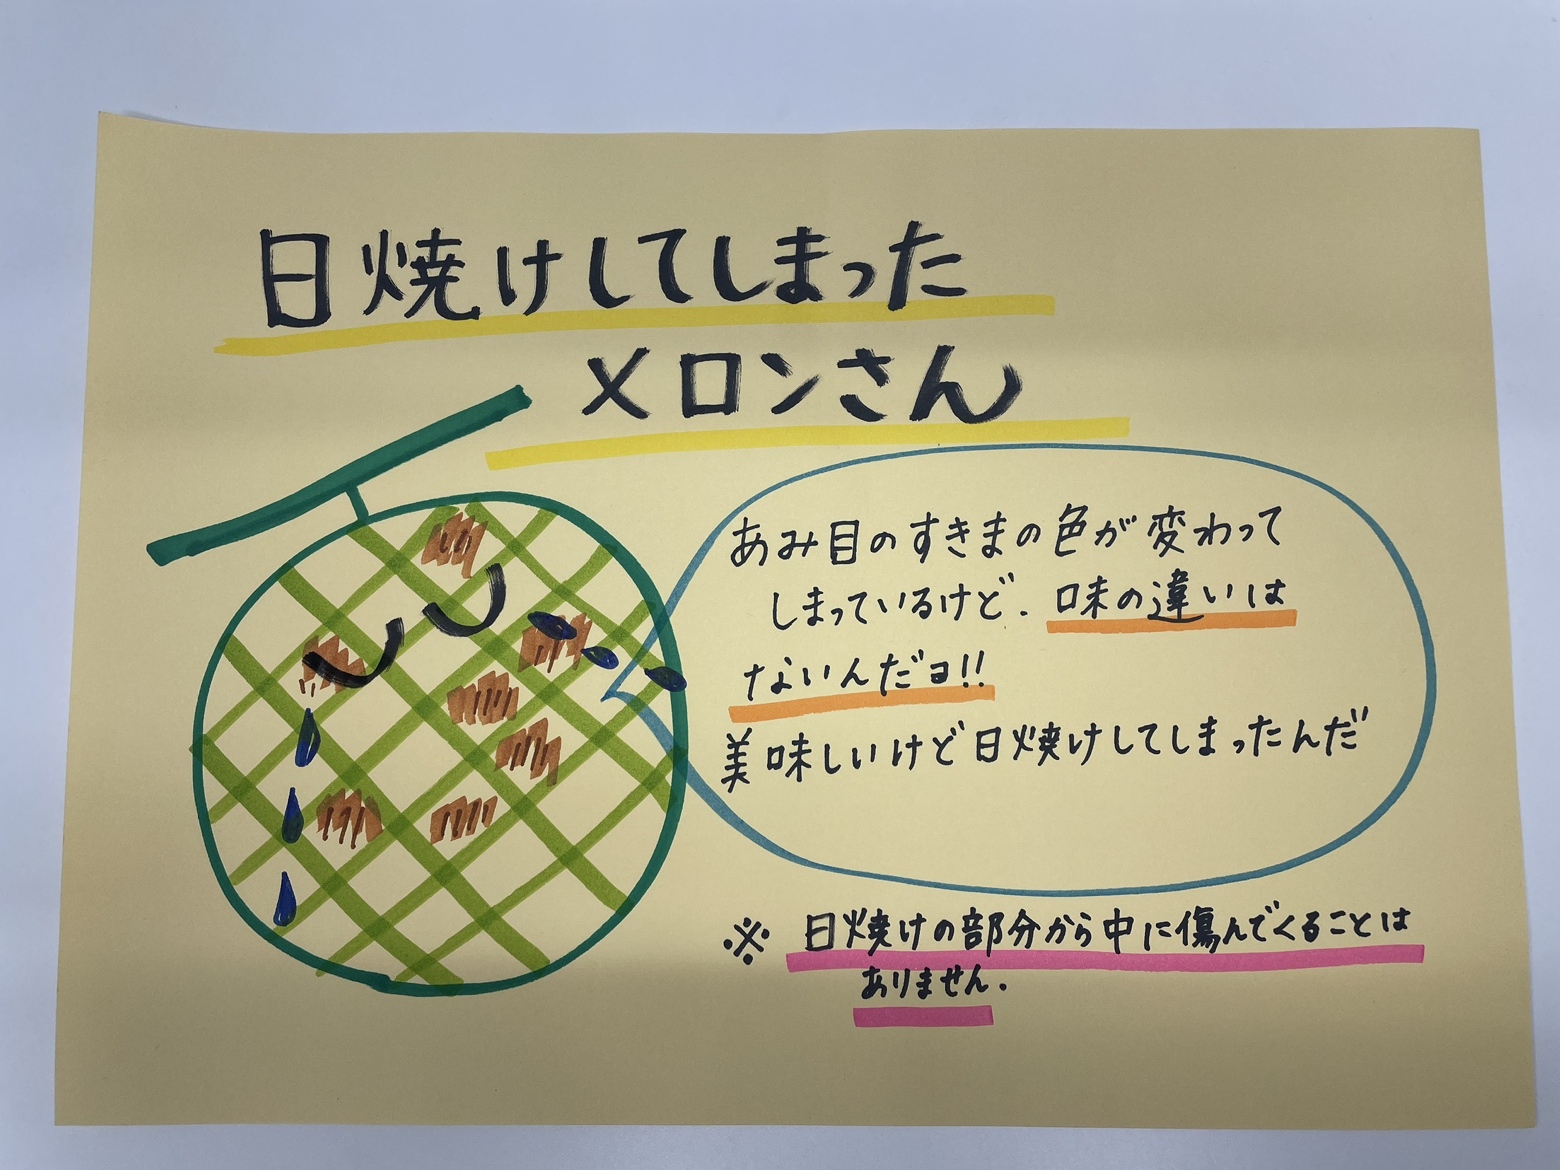 日焼けしてしまった
メロンさん
あみ目のすきまの色が変わって
しまっているけど.味の違いは
ないんだヨ!!
美味しいけど日焼けしてしまったんだ
※ 日焼けの部分から中に傷んでくることは
ありません.